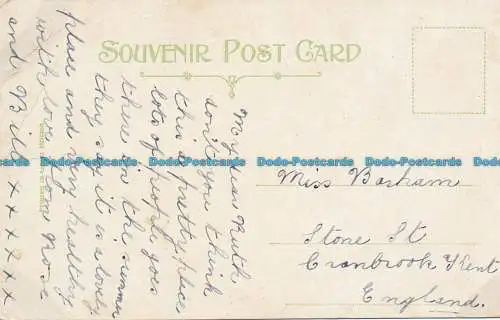 SOUVENIR POST CARD
My dear Ruth
don't you think
this a pretty place
lots of people goes
there in the summer
they say it is a lovely
place and very healthy
with love from Rose
and Bill x x x x x x
Miss Barham
Stone St
Cranbrook Kent
England.
Dodo-Postcards Dodo-Postcards Dodo-Postcards Dodo-Postcards Dodo-Postcards